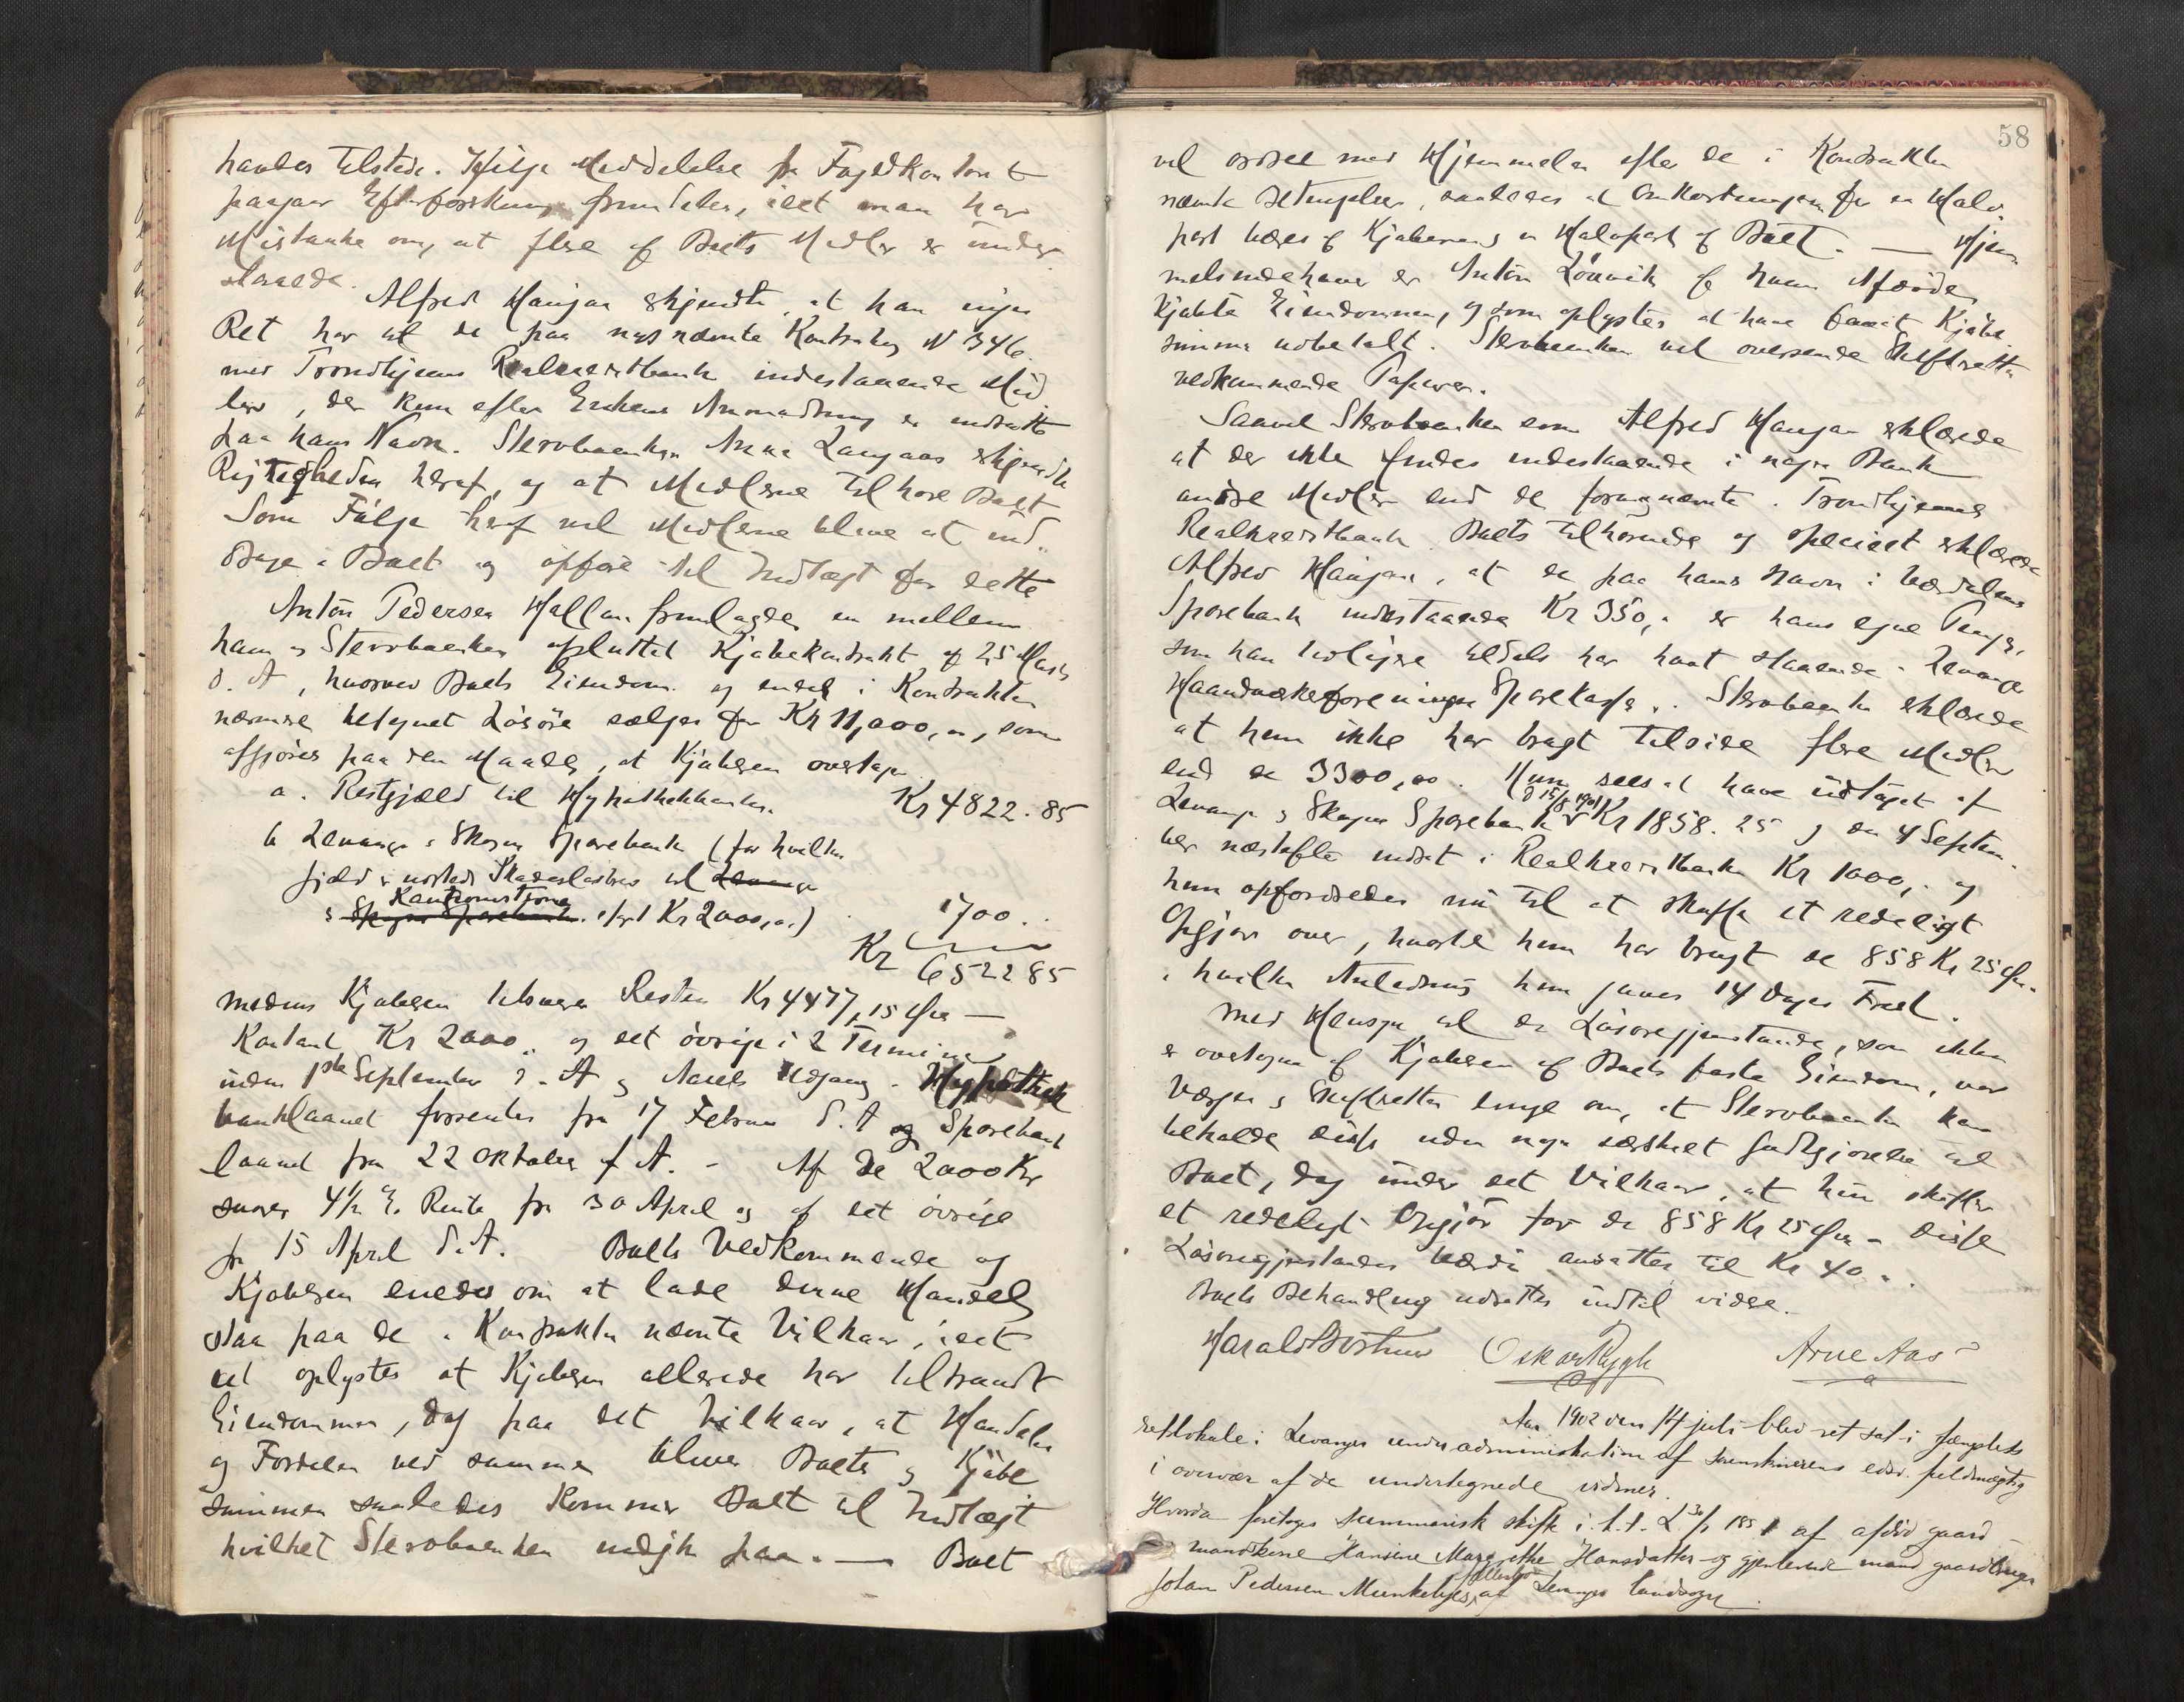 handes tilstede. Ifølge Meddelelse fra Fogedkontoret
paagaar Efterforskning fremdeles, idet man har
Mistanke om, at flere af Boets Midler er under
slaaede.
Alfred Haugan erkjendte, at han ingen
Ret har til de paa nysnævnte Kontrabog N 346
med Trondhjems Realkreditbank indestaaende Mid
ler, der kun efter Enkens Anmodning er indsatte
paa hans Navn. Stervboenken Anna Langaas erkjendte
Rigtigheden heraf, og at Midlerne tilhøre Boet
Som Følge heraf vil Midlerne blive at ind
drage i Boet og opføre til Indtægt for dette
Anton Pedersen Hallan fremlagde en mellem
ham og Stervboenken afsluttet Kjøbekontrakt af 25 Marts
d. A, hvorved Boets Eiendom og endel i Kontrakten
nærmere betegnet Løsøre sælges for Kr 11,000,00, som
afgjøres paa den Maade, at Kjøberen overtager
a. Restgjæld til Hypothekbanken Kr 4822.85
b Levanger & Skogns Sparebank (for hvilken
gjæld er udstedt Skadesløsbrev til Levanger
Kautionisterne
& Skogns Sparebank stort Kr 2000,00.) 1700..
Kr 6522 85
medens Kjøberen tilsvarer Resten Kr 4477,15 Øre —
Kontant Kr 2000,, og det øvrige i 2 Terminer
inden 1ste September d. A og Aarets Udgang. Hypothek
banklaanet forrentes fra 17 Februar d. A og Sparebank
laanet fra 22 Oktober f A. - Af de 2000 Kr
svares 4½ % Rente fra 30 April og af det øvrige
fra 15 April d. A. Boets Vedkommende og
Kjøberen enedes om at lade denne Handel
staa paa de i Kontrakten nævnte Vilkaar, idet
det oplystes at Kjøberen allerede har tiltraadt
Eiendommen, dog paa det Vilkaar, at Handelen
og Fordelen ved samme bliver Boets og Kjøbe
summen saaledes kommer Boet til Indtægt
hvilket Stervboenken indgik paa. — Boet
58
vil ordne med Hjemmelen efter de i Kontrakten
nævnte Betingelser, saaledes at Omkostningerne for en Halv
part bæres af Kjøberen og en Halvpart af Boet. — Hjem
melsindehaver er Anton Lønvik af hvem Afdøde
kjøbte Eiendommen, og som oplystes at have faaet Kjøbe
summen udbetalt. Stervboenken vil oversende Skifteretten
vedkommende Papirer.
Saavel Stervboenken som Alfred Haugan erklærede
at der ikke findes indestaaende i nogen Bank
andre Midler end de forannævnte i Trondhjems
Realkreditbank Boets tilhørende og specielt erklærede
Alfred Haugan, at de paa hans Navn i Værdalens
Sparebank indestaaende Kr 350,- er hans egne Penge,
som han tidligere tildels har havt staaende i Levanger
Haandværkerforenings Sparekasse. Stervboenken erklærede
at hun ikke har bragt tilside flere Midler
end de 3300,00. Hun sees at have udtaget af
d 15/8 1901
Levanger & Skogns Sparebank Kr 1858.25 og den 4 Septem
ber næstefter indsat i Realkreditbanken Kr 1000,- og
hun opfordredes nu til at skaffe et redeligt
Opgjør over, hvortil hun har brugt de 858 Kr 25 Øre.
i hvilken Anledning hun gaves 14 Dages Frist.
Med Hensyn til de Løsøregjenstande, som ikke
er overtagne af Kjøberen af Boets faste Eiendom, var
Værgen & Skifteretten enige om, at Stervboenken kan
beholde disse uden nogen særskilt Godtgjørelse til
Boet, dog under det Vilkaar, at hun skaffer
et redeligt Opgjør for de 858 Kr 25 Øre - Disse
Løsøregjenstandes Værdi ansættes til Kr 40,,.
Boets Behandling udsattes indtil videre.
Harald Bothner Oskar Rygh Arne Aas
Aar 1902 den 14 juli blev ret sat i fængslets
retslokale i Levanger under administration af sorenskriverens edsv. fuldmægtig
i overvær af de undertegnede vidner.
Hvorda foretoges summarisk skifte i h. t. L 30/7 1851 af afdød gaard
mandkone Hansine Margrethe Hansdatter og gjenlevende mand gaardbruger
Johan Pedersen Munkeby af Levanger landsogn.